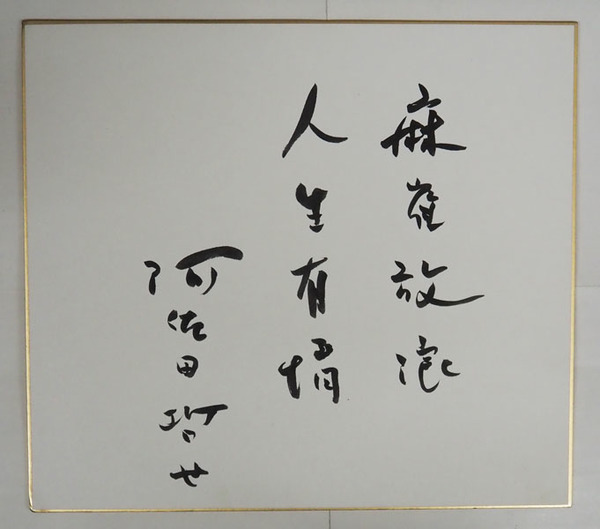 麻雀放浪
人生有情
阿佐田哲也